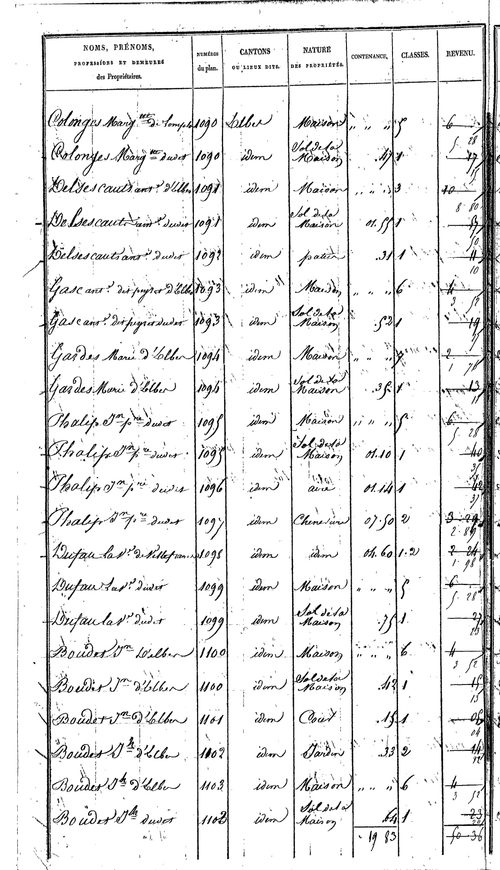 NOMS, PRÉNOMS,
PROFESSIONS ET DEMEURES
des Propriétaires.
NUMÉROS
du plan.
CANTONS
OU LIEUX DITS.
NATURE
DES PROPRIÉTÉS.
CONTENANCE.
CLASSES.
REVENU.
Colonges Marg 1090 Elbes Maison " " " 5 6
5 28
Colonges Marg dudit 1090 idem Sol de la Maison .47 1 17
15
Delsescauts ant d'Elbes 1091 idem Maison " " " 3 10
8 80
Delsescauts ant dudit 1091 idem Sol de la Maison 01.55 1
50
Delsescauts ant dudit 1092 idem patus .31 1 11
10
Gasc ant dit peyrot d'Elbes 1093 idem Maison " " " 6 4
3 52
Gasc ant dit peyrot dudit 1093 idem Sol de la Maison .52 1 19
17
Gardes Marie d'Elbes 1094 idem Maison " " " 7 2
1 76
Gardes Marie d'Elbes 1094 idem Sol de la Maison .35 1 13
Phalip Jn p re dudit 1095 idem Maison " " " 5 6
5 28
Phalip Jn p re dudit 1095 idem Sol de la Maison 01.10 1 40
Phalip Jn p re dudit 1096 idem aire 01.14 1 42
37
Phalip Jn p re dudit 1097 idem Cheneviere 07.50 2 3 29
2 89
Dufau la Ve de Villefranche 1098 idem idem 04.60 1.2 2 24
1 98
Dufau la Ve dudit 1099 idem Maison " " " 5 6
5 28
Dufau la Ve dudit 1099 idem Sol de la Maison .75 1 27
Boudet Jn d'Elbes 1100 idem Maison " " " 6 4
3 52
Boudet Jn d'Elbes 1100 idem Sol de la Maison .42 1 15
13
Boudet Jn d'Elbes 1101 idem Cour .15 1 06
04
Boudet Jh d'Elbes 1102 idem Jardin .33 2 14
12
Boudet Jh d'Elbes 1103 idem Maison " " " 6 4
3 52
Boudet Jh dudit 1102 idem Sol de la Maison .64 1 23
20
19 83 50 36